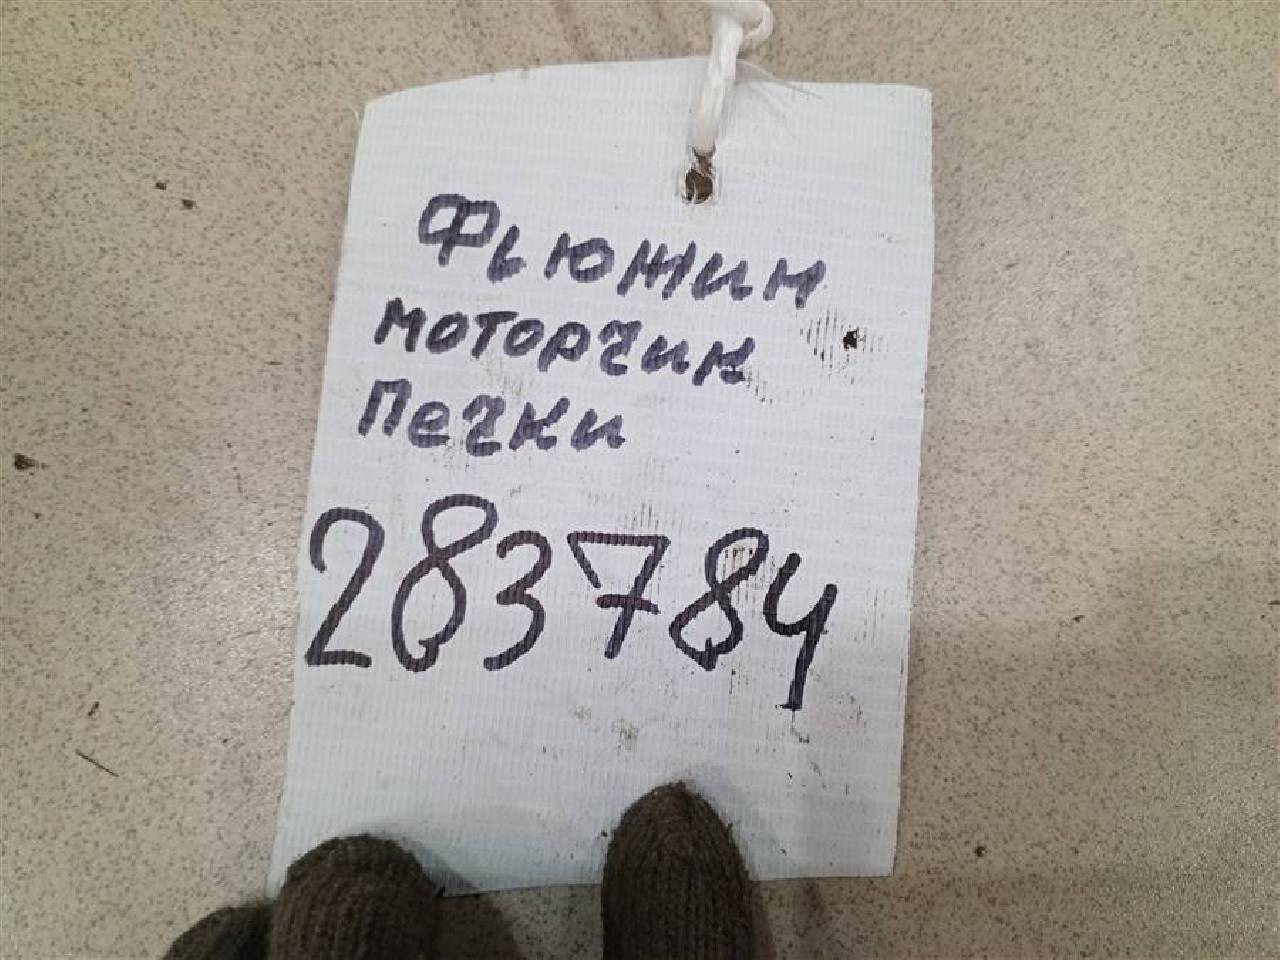 Фьюжин
моторчик
Печки
283784